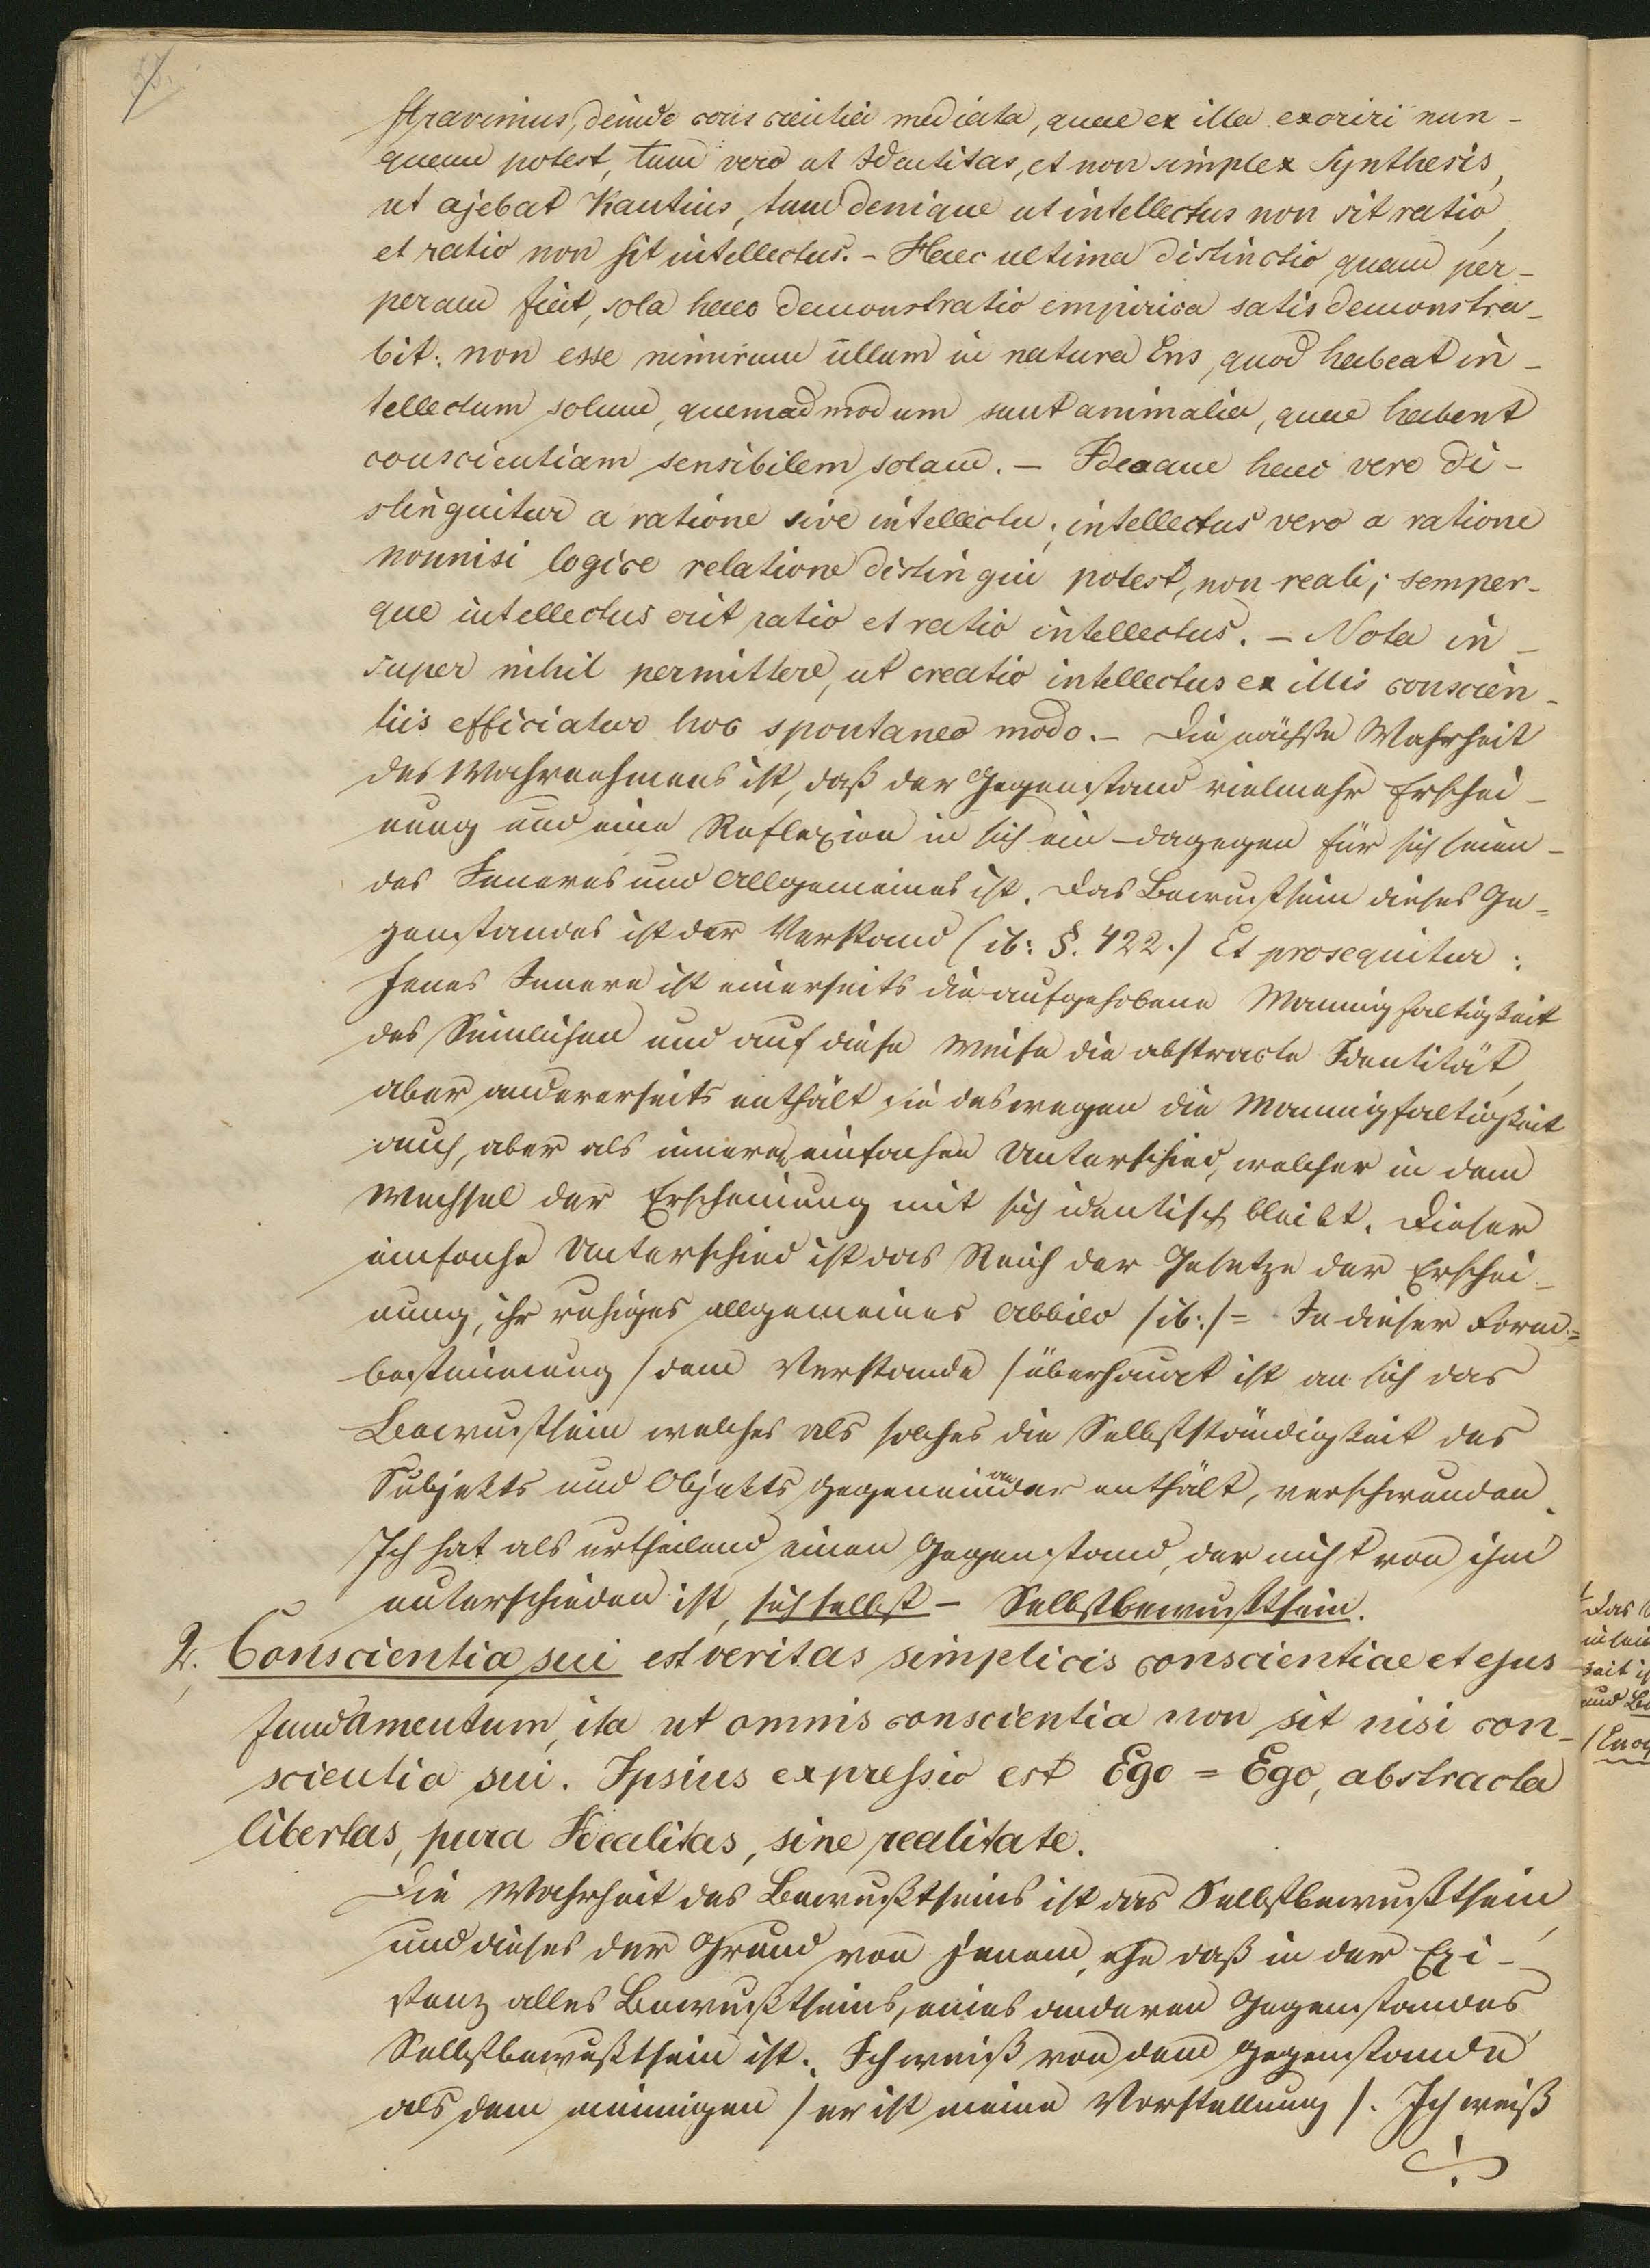 stravimus, deinde conscientia mediata, quae ex illa exoriri nun-
quam potest, tum vero ut Identitas, et non simplex Synthesis,
ut ajebat Kantius, tum denique ut intellectus non sit ratio,
et ratio non sit intellectus. - Haec ultima distinctio, quam per-
peram fiat, sola haec demonstratio empirica satis demonstra-
bit: non esse nimirum ullum in natura Ens, quod habeat in-
tellectum solum, quemadmodum sunt animalia, quae habent
conscientiam sensibilem solam. - Ideaque haec vero di-
stinguitur a ratione sive intellectu; intellectus vero a ratione
nonnisi logice relatione distingui potest, non reali; semper-
que intellectus erit ratio et ratio intellectus. - Nota in-
super nihil permittere, ut creatio intellectus ex illis conscien-
tiis efficiatur hoc spontaneo modo. - Die nächste Wahrheit
des Wahrnehmens ist, daß der Gegenstand vielmehr Erschei-
nung und eine Reflexion in sich ein - dagegen für sich seien-
des Inneres und Allgemeines ist. Das Bewustsein dieses Ge-
genstandes ist der Verstand (ib: §. 422.) Et prosequitur:
Jenes Innere ist einerseits die aufgehobene Mannigfaltigkeit
des Sinnlichen und auf diese Weise die abstracte Identität,
aber andererseits enthält sie deswegen die Mannigfaltigkeit
auch, aber als inneren einfachen Unterschied, welcher in dem
Wechsel der Erscheinung mit sich identisch bleibt. Dieser
einfache Unterschied ist das Reich der Gesetze der Erschei-
nung, ihr ruhiges allgemeines Abbild /ib:/ = In dieser Form=
bestimmung /dem Verstande/ überhaupt ist an sich das
Bewustsein welches als solches die Selbstständigkeit des
Subjekts und Objekts gegeneinander enthält, verschwunden.
Ich hat als urtheilend einen Gegenstand, der nicht von ihm
unterschieden ist, sich selbst - Selbstbewusstsein.
2. Conscientia sui est veritas simplicis conscientiae et ejus
fundamentum, ita ut omnis conscientia non sit nisi con-
scientia sui. Ipsius expressio est Ego = Ego, abstracta
libertas, pura Idealitas, sine realitate.
Die Wahrheit des Bewußtseins ist das Selbstbewußtsein,
und dieses der Grund von jenem, so daß in der Exi-
stenz alles Bewußtseins, eines anderen Gegenstandes
Selbstbewußtsein ist. Ich weiß von dem Gegenstande
als dem meinigen /er ist meine Vorstellung/. Ich weiß